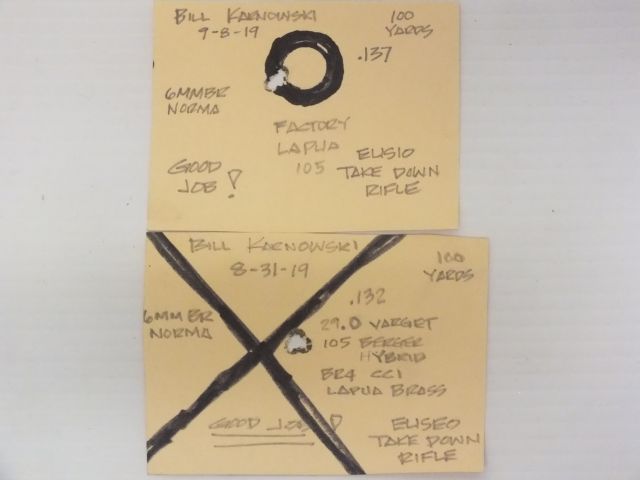 BILL KARNOWSKI
9-8-19
100
YARDS
.137
6MMBR
NORMA
FACTORY
LAPUA
105
GOOD
JOB!
ELISIO
TAKE DOWN
RIFLE
BILL KARNOWSKI
8-31-19
100
YARDS
.132
6MMBR
NORMA
29.0 VARGET
105 BERGER
HYBRID
BR4 CCI
LAPUA BRASS
GOOD JOB!
ELISEO
TAKE DOWN
RIFLE